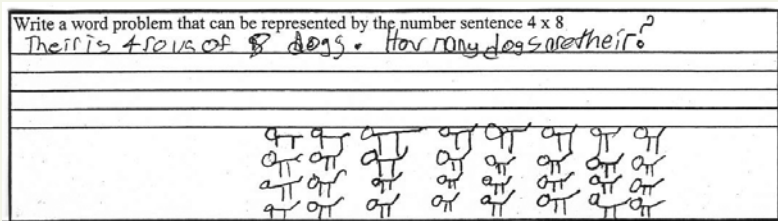 Write a word problem that can be represented by the number sentence 4 x 8
Their is 4 rows of 8 dogs. How many dogs are their?